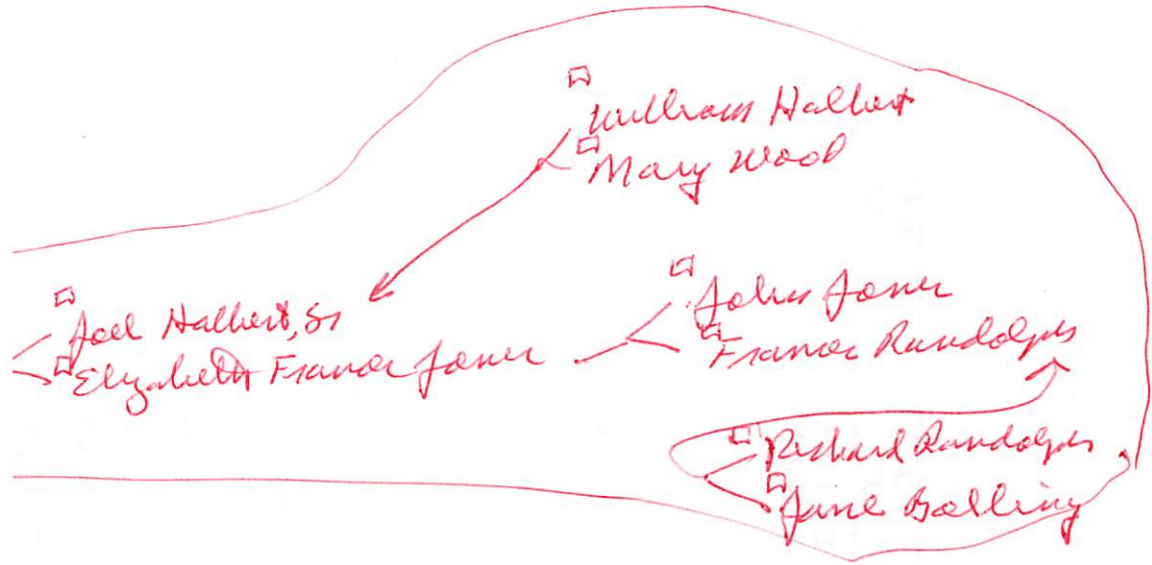 William Halbert
Mary Wood
Joel Halbert, Sr
Elizabeth Frances Jones
John Jones
Frances Randolph
Richard Randolph
Jane Bolling